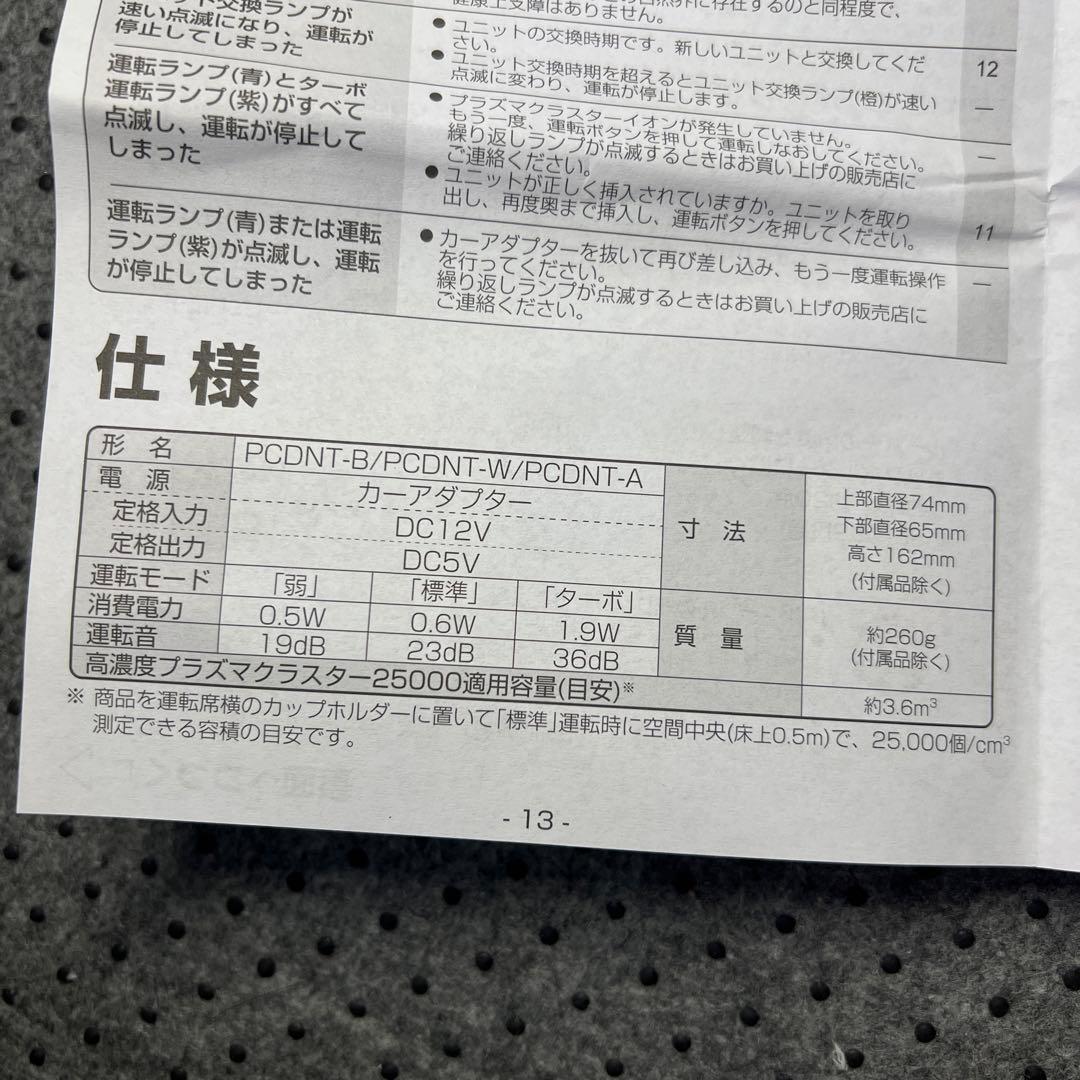 ット交換ランプが
速い点滅になり、運転が
停止してしまった
存在するのと同程度で、
健康上支障はありません。
● ユニットの交換時期です。新しいユニットと交換してくだ
さい。
12
● ユニット交換時期を超えるとユニット交換ランプ(橙)が速い
点滅に変わり、運転が停止します。
—
運転ランプ(青)とターボ
運転ランプ(紫)がすべて
点滅し、運転が停止して
しまった
● プラズマクラスターイオンが発生していません。
もう一度、運転ボタンを押して運転しなおしてください。
繰り返しランプが点滅するときはお買い上げの販売店に
ご連絡ください。
—
● ユニットが正しく挿入されていますか。ユニットを取り
出し、再度奥まで挿入し、運転ボタンを押してください。
11
運転ランプ(青)または運転
ランプ(紫)が点滅し、運転
が停止してしまった
● カーアダプターを抜いて再び差し込み、もう一度運転操作
を行ってください。
繰り返しランプが点滅するときはお買い上げの販売店に
ご連絡ください。
—
仕様
形 名 PCDNT-B/PCDNT-W/PCDNT-A
電 源 カーアダプター
定格入力 DC12V
定格出力 DC5V
運転モード 「弱」 「標準」 「ターボ」
消費電力 0.5W 0.6W 1.9W
運転音 19dB 23dB 36dB
寸 法
上部直径74mm
下部直径65mm
高さ162mm
(付属品除く)
質 量
約260g
(付属品除く)
高濃度プラズマクラスター25000適用容量(目安)※ 約3.6m³
※ 商品を運転席横のカップホルダーに置いて「標準」運転時に空間中央(床上0.5m)で、25,000個/cm³
測定できる容積の目安です。
- 13 -